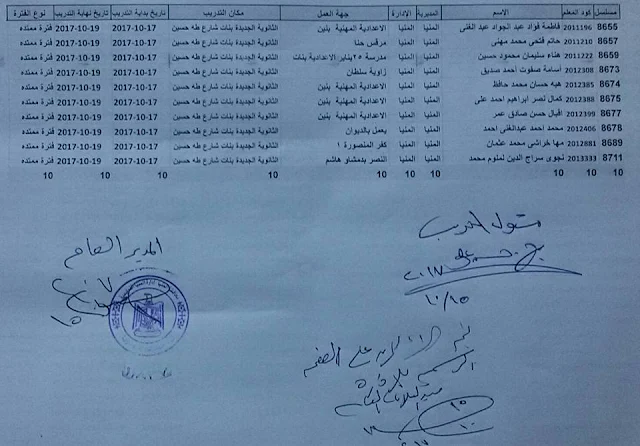 مسلسل كود المعلم الاسم المديرية الادارة جهة العمل مكان التدريب تاريخ بداية التدريب تاريخ نهاية التدريب نوع الفترة
8655 2011196 فاطمة فؤاد عبد الجواد عبد الغنى المنيا المنيا الاعدادية المهنية بنين الثانوية الجديدة بنات شارع طه حسين 2017-10-17 2017-10-19 فترة ممتده
8657 2011210 حاتم فتحى محمد مهنى المنيا المنيا مرقس حنا الثانوية الجديدة بنات شارع طه حسين 2017-10-17 2017-10-19 فترة ممتده
8659 2011222 هناء سليمان محمود حسين المنيا المنيا مدرسة ٢٥يناير الاعدادية بنات الثانوية الجديدة بنات شارع طه حسين 2017-10-17 2017-10-19 فترة ممتده
8673 2012308 أسامة صفوت أحمد صديق المنيا المنيا زاوية سلطان الثانوية الجديدة بنات شارع طه حسين 2017-10-17 2017-10-19 فترة ممتده
8674 2012385 هبه حسان محمد حافظ المنيا المنيا الاعدادية المهنية بنين الثانوية الجديدة بنات شارع طه حسين 2017-10-17 2017-10-19 فترة ممتده
8675 2012388 كمال نصر ابراهيم احمد على المنيا المنيا الاعدادية المهنية بنين الثانوية الجديدة بنات شارع طه حسين 2017-10-17 2017-10-19 فترة ممتده
8677 2012399 اقبال حسن صادق عمر المنيا المنيا الاعدادية المهنية بنين الثانوية الجديدة بنات شارع طه حسين 2017-10-17 2017-10-19 فترة ممتده
8678 2012406 محمد احمد عبدالغنى احمد المنيا المنيا يعمل بالديوان الثانوية الجديدة بنات شارع طه حسين 2017-10-17 2017-10-19 فترة ممتده
8689 2012881 مها خراشى محمد عثمان المنيا المنيا كفر المنصورة ١ الثانوية الجديدة بنات شارع طه حسين 2017-10-17 2017-10-19 فترة ممتده
8711 2013333 نجوى سراج الدين لملوم محمد المنيا المنيا النصر بدمشاو هاشم الثانوية الجديدة بنات شارع طه حسين 2017-10-17 2017-10-19 فترة ممتده
10 10 10 10 10 10 10 10 10 10
مسئول التدريب
٢٠١٧
١٠/١٥
المدير العام
على الصفحة